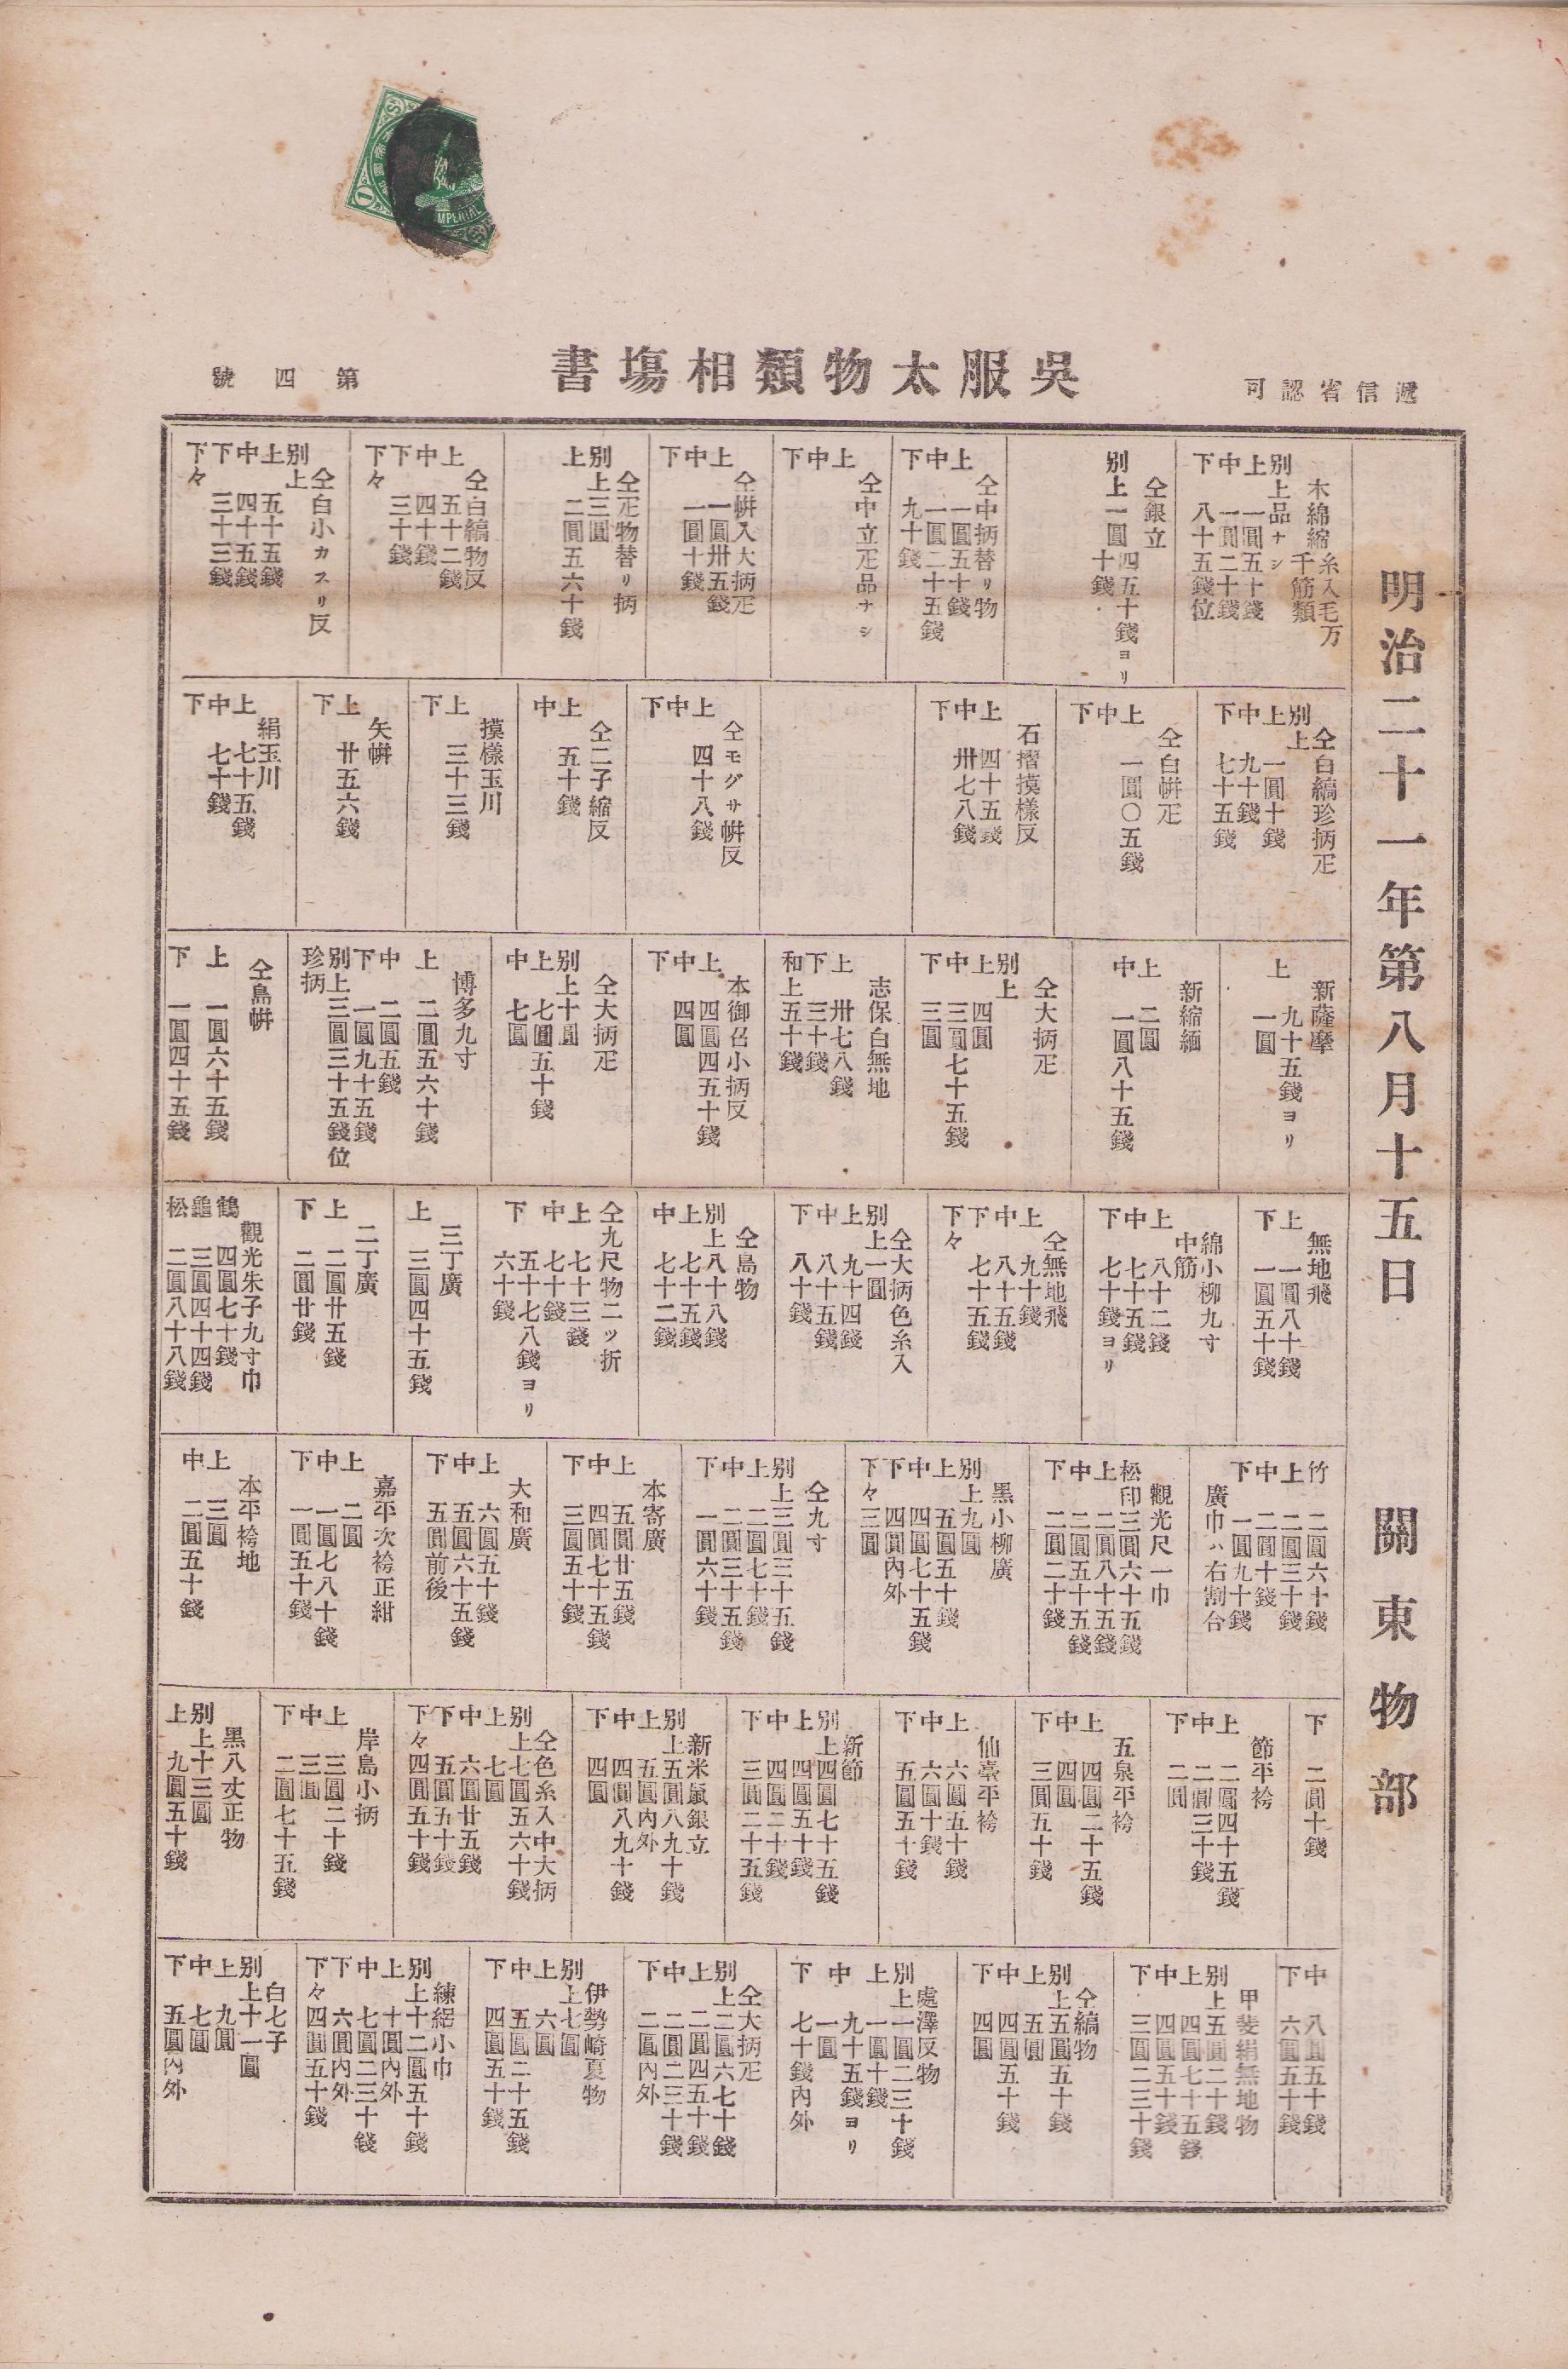 遞信省認可
呉服太物類相塲書
第四號
明治二十一年第八月十五日
關東物部
木綿縮糸入毛万
千筋類
別上品ナシ
上一圓五十錢
中一圓二十錢
下八十五錢位
仝銀立
別上一圓四五十錢ヨリ
十錢
仝中柄替リ物
上一圓五十錢
中一圓二十五錢
下九十錢
仝中立疋品ナシ
上
中
下
仝絣入大柄疋
上一圓卅五錢
中一圓十錢
下
仝疋物替リ柄
別上三圓
上二圓五六十錢
仝白縞物反
上五十二錢
中四十錢
下三十錢
下々
仝白小カスリ反
別上
上五十五錢
中四十五錢
下三十三錢
下々
仝白縞珍柄疋
別上
上一圓十錢
中九十錢
下七十五錢
仝白絣疋
上
中一圓〇五錢
下
石摺摸樣反
上四十五錢
中卅七八錢
下
仝モグサ絣反
上
中四十八錢
下
仝二子縮反
上五十錢
中
摸樣玉川
上三十三錢
下
矢絣
上廿五六錢
下
絹玉川
上七十五錢
中七十錢
下
新薩摩
上九十五錢ヨリ
一圓
新縮緬
上二圓
中一圓八十五錢
仝大柄疋
別上
上四圓
中三圓七十五錢
下三圓
志保白無地
上卅七八錢
下三十錢
和上五十錢
本御召小柄反
上四圓四五十錢
中四圓
下
仝大柄疋
別上十圓
上七圓五十錢
中七圓
博多九寸
上二圓五六十錢
中二圓五錢
下一圓九十五錢
別上三圓三十五錢位
珍柄
仝鳥絣
上一圓六十五錢
下一圓四十五錢
無地飛
上一圓八十錢
下一圓五十錢
綿小柳九寸
中筋
上八十二錢
中七十五錢
下七十錢ヨリ
仝無地飛
上九十錢
中八十五錢
下七十五錢
下々
仝大柄色糸入
別上一圓
上九十四錢
中八十五錢
下八十錢
仝島物
別上八十八錢
上七十五錢
中七十二錢
仝九尺物二ツ折
上七十三錢
中七十錢
下五十七八錢ヨリ
六十錢
三丁廣
上三圓四十五錢
二丁廣
上二圓廿五錢
下二圓廿錢
觀光朱子九寸巾
鶴四圓七十錢
龜三圓四十四錢
松二圓八十八錢
竹二圓六十錢
上二圓三十錢
中二圓十錢
下一圓九十錢
廣巾ハ右割合
觀光尺一巾
松印三圓六十五錢
上二圓八十五錢
中二圓五十五錢
下二圓二十錢
黑小柳廣
別上九圓
上五圓五十錢
中四圓七十五錢
下四圓內外
下々三圓
仝九寸
別上三圓三十五錢
上二圓七十錢
中二圓三十五錢
下一圓六十錢
本寄廣
上五圓廿五錢
中四圓七十五錢
下三圓五十錢
大和廣
上六圓五十錢
中五圓六十五錢
下五圓前後
嘉平次袴正紺
上二圓
中一圓七八十錢
下一圓五十錢
本平袴地
上三圓
中二圓五十錢
下二圓十錢
節平袴
上二圓四十五錢
中二圓三十錢
下二圓
五泉平袴
上四圓二十五錢
中四圓
下三圓五十錢
仙臺平袴
上六圓五十錢
中六圓十錢
下五圓五十錢
新節
別上四圓七十五錢
上四圓五十錢
中四圓二十錢
下三圓二十五錢
新米嵐銀立
別上五圓八九十錢
上五圓內外
中四圓八九十錢
下四圓
仝色糸入中大柄
別上七圓五六十錢
上七圓
中六圓廿五錢
下五圓五十錢
下々四圓五十錢
岸島小柄
上三圓二十錢
中三圓
下二圓七十五錢
黑八丈正物
別上十三圓
上九圓五十錢
中八圓五十錢
下六圓五十錢
甲斐絹無地物
別上五圓二十錢
上四圓七十五錢
中四圓五十錢
下三圓二三十錢
仝縞物
別上五圓五十錢
上五圓
中四圓五十錢
下四圓
處澤反物
別上一圓二三十錢
上一圓十錢
中九十五錢ヨリ
一圓
下七十錢內外
仝大柄疋
別上二圓六七十錢
上二圓四五十錢
中二圓二三十錢
下二圓內外
伊勢崎夏物
別上七圓
上六圓
中五圓二十五錢
下四圓五十錢
練絽小巾
別上十二圓五十錢
上十圓內外
中七圓二三十錢
下六圓內外
下々四圓五十錢
白七子
別上十一圓
上九圓
中七圓
下五圓內外
MPERIAL